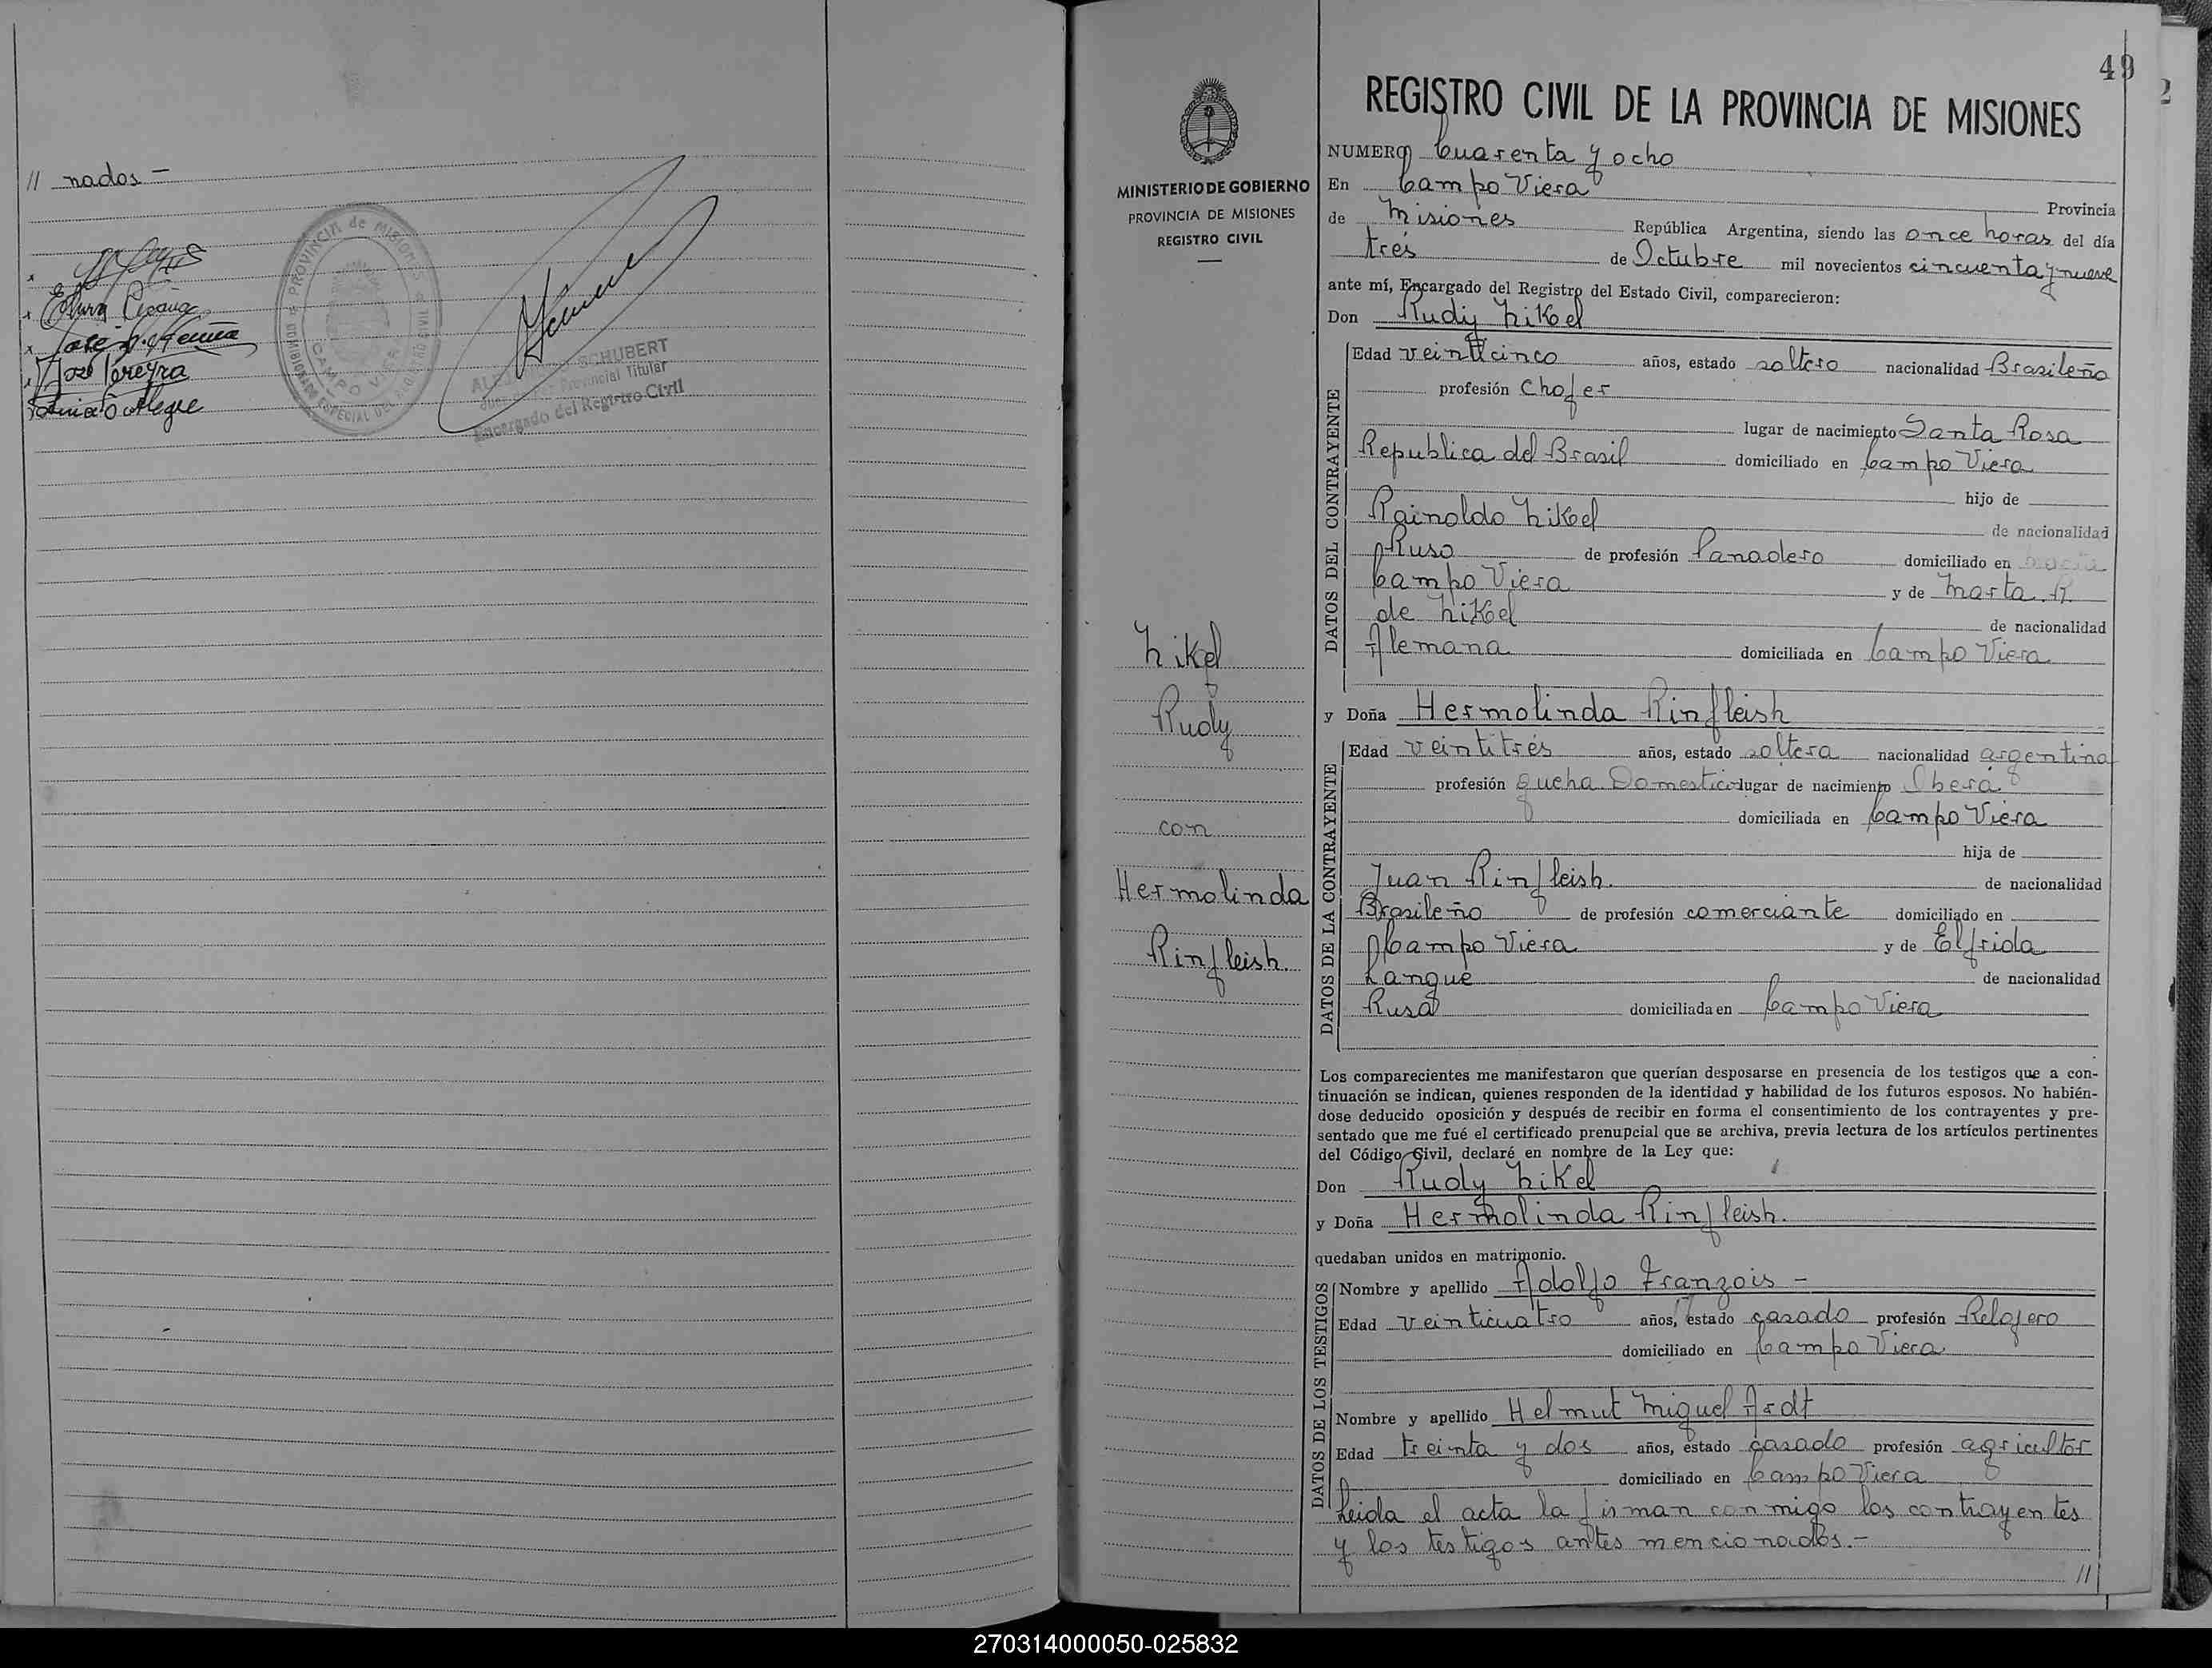 // nados —
José Pereyra
Alegre
PROVINCIA de MISIONES
CAMPO VIERA
SCHUBERT
Provincial Titular
Encargado del Registro Civil
49
2
MINISTERIO DE GOBIERNO
PROVINCIA DE MISIONES
REGISTRO CIVIL
Nikel
Rudy
con
Hermolinda
Rinfleish.
REGISTRO CIVIL DE LA PROVINCIA DE MISIONES
NUMERO Cuarenta y ocho
En Campo Viera Provincia
de Misiones República Argentina, siendo las once horas del día
tres de Octubre mil novecientos cincuenta y nueve
ante mí, Encargado del Registro del Estado Civil, comparecieron:
Don Rudy Nikel
DATOS DEL CONTRAYENTE
Edad veinticinco años, estado soltero nacionalidad Brasileño
profesión Chofer
lugar de nacimiento Santa Rosa
Republica del Brasil domiciliado en Campo Viera
hijo de
Rainoldo Nikel de nacionalidad
Ruso de profesión Panadero domiciliado en
Campo Viera y de Marta. R.
de Nikel de nacionalidad
Alemana domiciliada en Campo Viera
y Doña Hermolinda Rinfleish
DATOS DE LA CONTRAYENTE
Edad veintitrés años, estado soltera nacionalidad argentina
profesión queha. Domesticos lugar de nacimiento Oberá
domiciliada en Campo Viera
hija de
Juan Rinfleish. de nacionalidad
Brasileño de profesión comerciante domiciliado en
Campo Viera y de Elfrida
Langue de nacionalidad
Rusa domiciliada en Campo Viera
Los comparecientes me manifestaron que querían desposarse en presencia de los testigos que a con-
tinuación se indican, quienes responden de la identidad y habilidad de los futuros esposos. No habién-
dose deducido oposición y después de recibir en forma el consentimiento de los contrayentes y pre-
sentado que me fué el certificado prenupcial que se archiva, previa lectura de los artículos pertinentes
del Código Civil, declaré en nombre de la Ley que:
Don Rudy Nikel
y Doña Hermolinda Rinfleish.
quedaban unidos en matrimonio.
DATOS DE LOS TESTIGOS
Nombre y apellido Adolfo Franzois —
Edad veinticuatro años, estado casado profesión Relojero
domiciliado en Campo Viera
Nombre y apellido Helmut Miguel Ardt
Edad treinta y dos años, estado casado profesión agricultor
domiciliado en Campo Viera
Leida el acta la firman conmigo los contrayentes
y los testigos antes mencionados.—
//
270314000050-025832